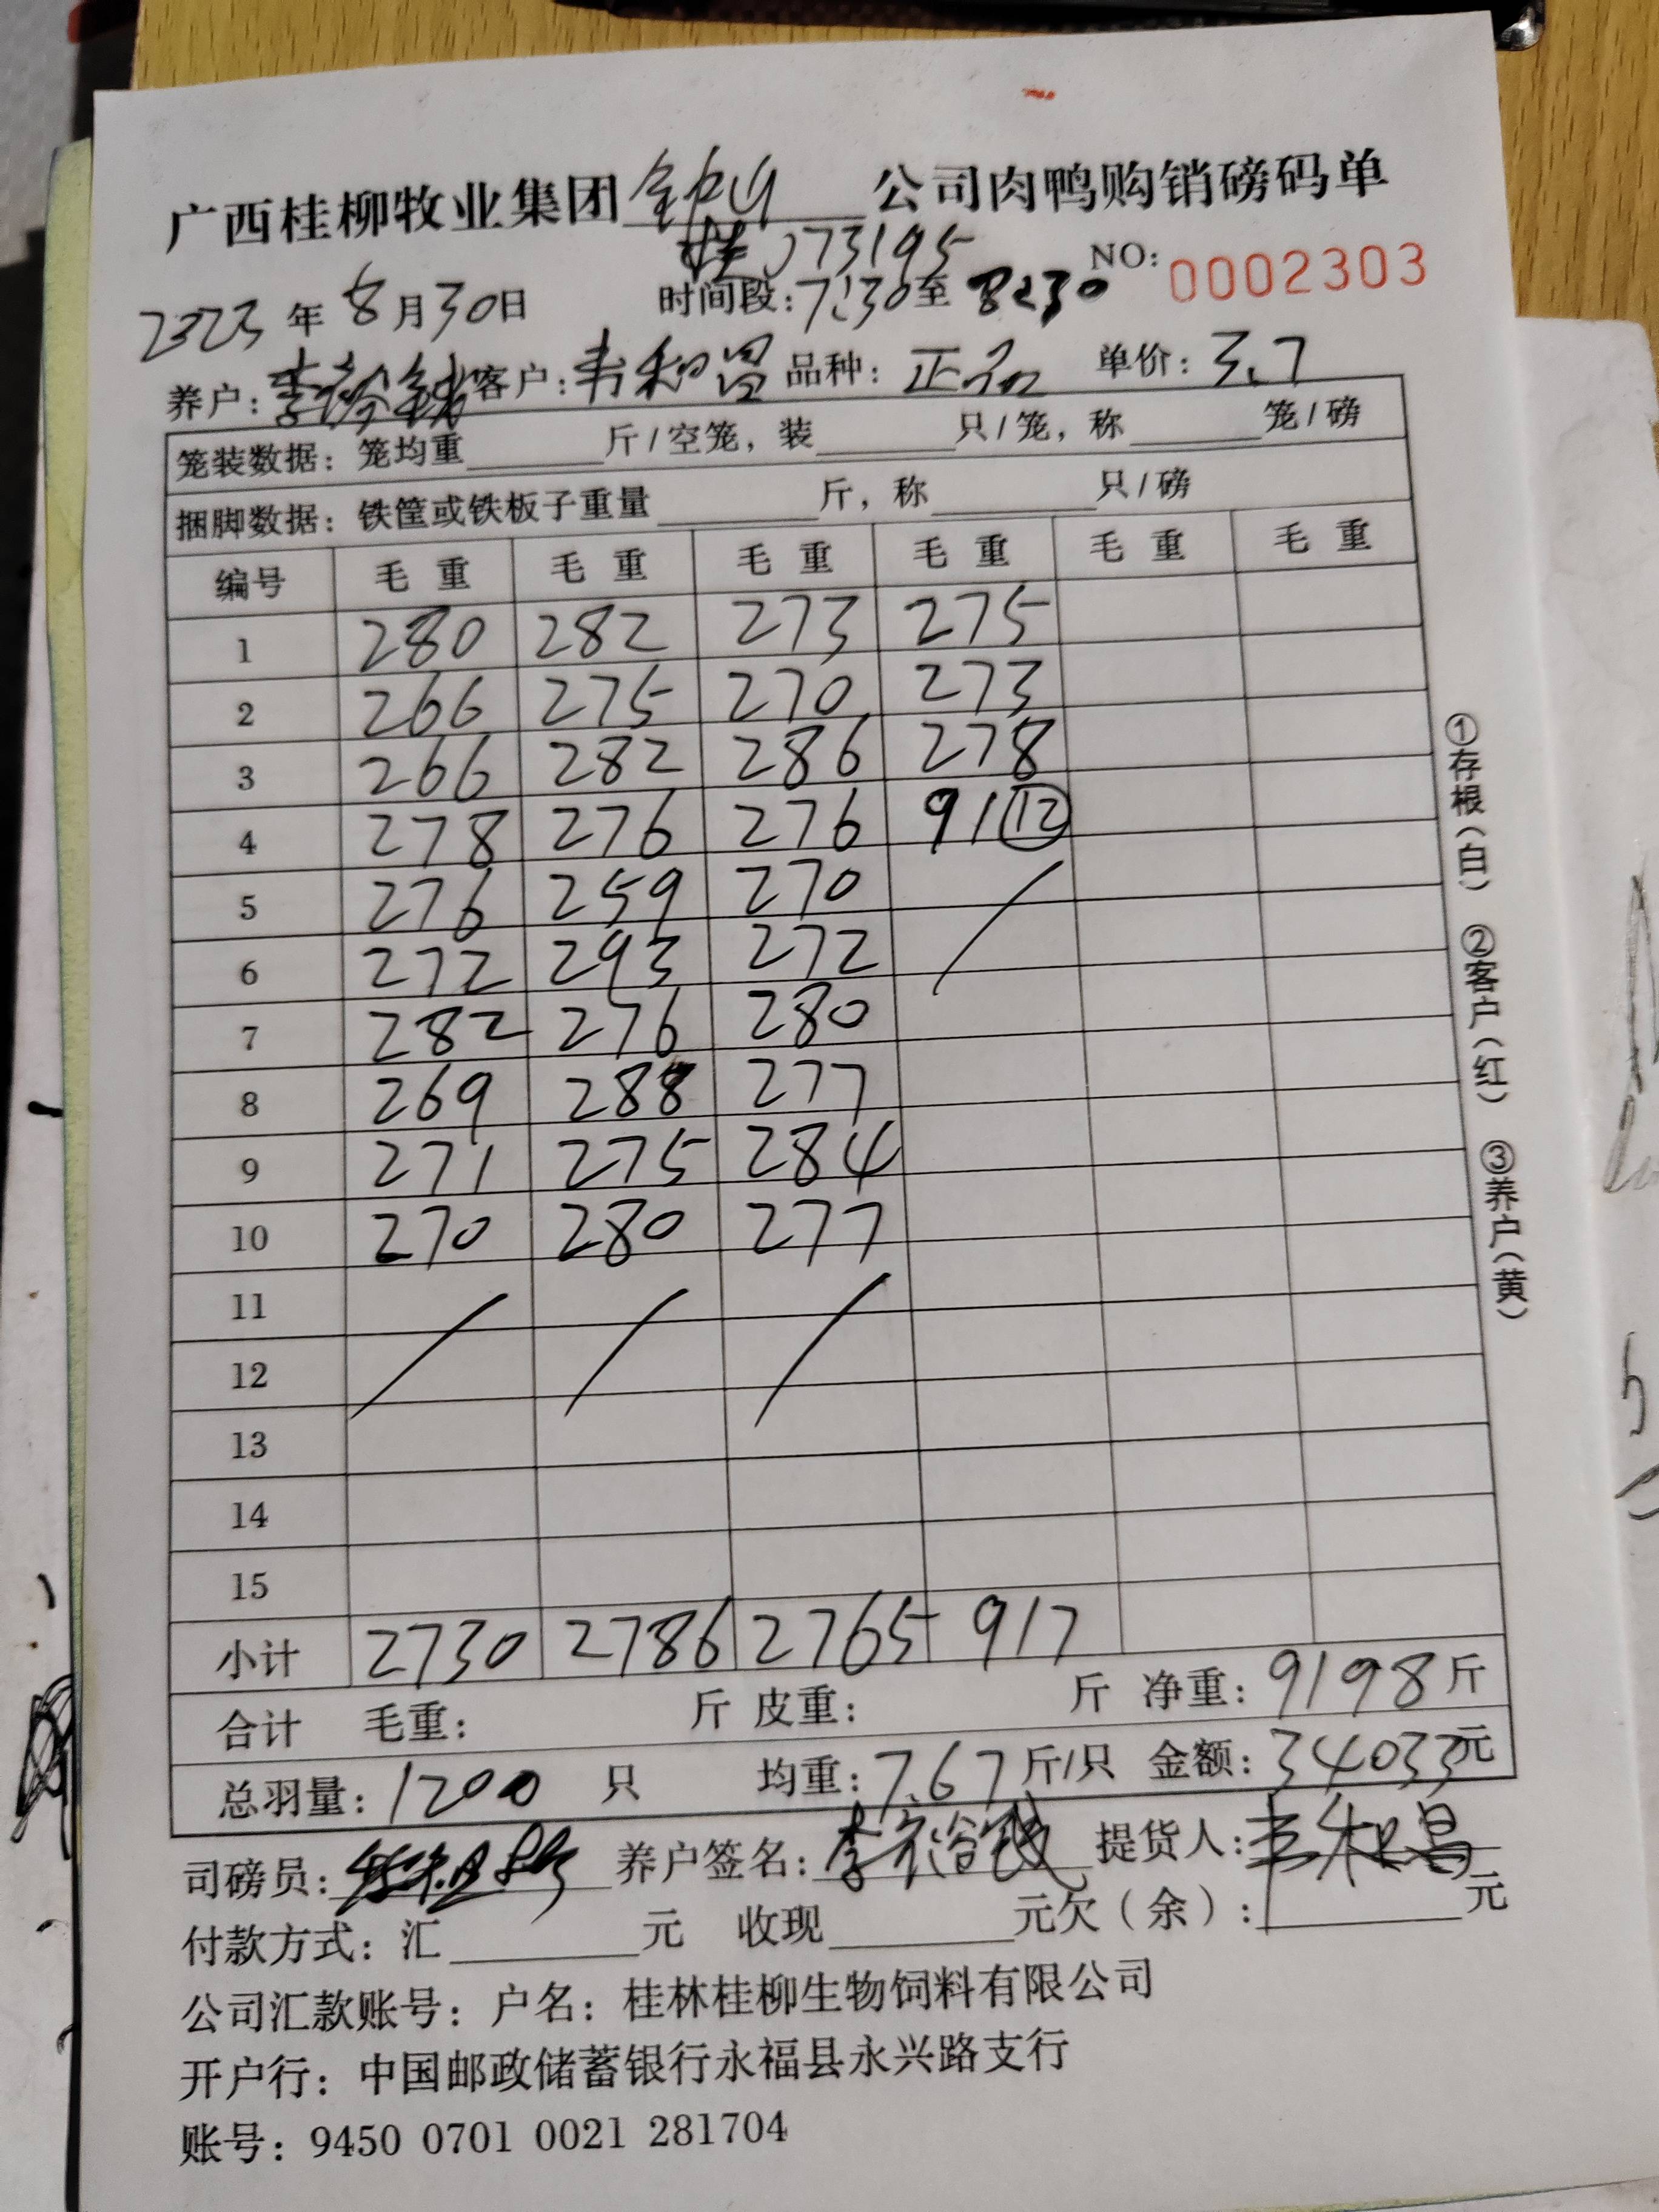 广西桂柳牧业集团钟山公司肉鸭购销磅码单
桂J73195 NO: 0002303
2023年8月30日 时间段:7:30至8:30
养户: 李裕钱 客户: 韦和昌 品种: 正品 单价: 3.7
笼装数据: 笼均重 斤/空笼, 装 只/笼, 称 笼/磅
捆脚数据: 铁筐或铁板子重量 斤, 称 只/磅
编号 毛重 毛重 毛重 毛重 毛重 毛重
1 280 282 273 275
2 266 275 270 273
3 266 282 286 278
4 278 276 276 91⑫
5 276 259 270
6 272 293 272
7 282 276 280
8 269 288 277
9 271 275 284
10 270 280 277
11
12
13
14
15
小计 2730 2786 2765 917
合计 毛重: 斤 皮重: 斤 净重: 9198斤
总羽量: 1200 只 均重: 7.67斤/只 金额: 34033元
司磅员: 养户签名: 李裕钱 提货人: 韦和昌
付款方式: 汇 元 收现 元欠(余): 元
公司汇款账号: 户名: 桂林桂柳生物饲料有限公司
开户行: 中国邮政储蓄银行永福县永兴路支行
账号: 9450 0701 0021 281704
①存根(白) ②客户(红) ③养户(黄)